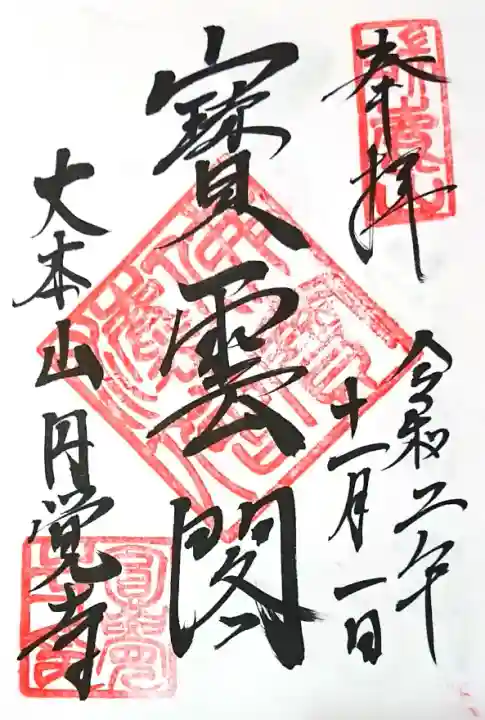 奉拝
令和二年
十一月一日
寶雲閣
大本山円覚寺